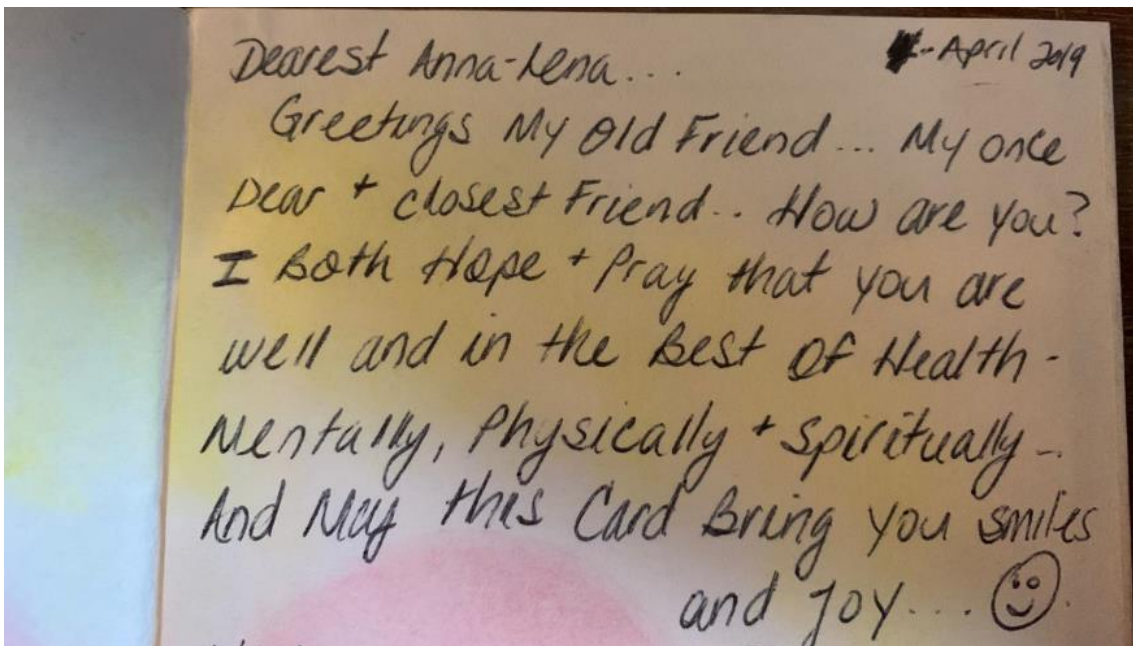 Dearest Anna-Lena... - April 2019
Greetings My Old Friend... My once
Dear + closest Friend.. How are you?
I Both Hope + Pray that you are
well and in the Best of Health -
Mentally, Physically + Spiritually -
And May this Card Bring you smiles
and Joy....